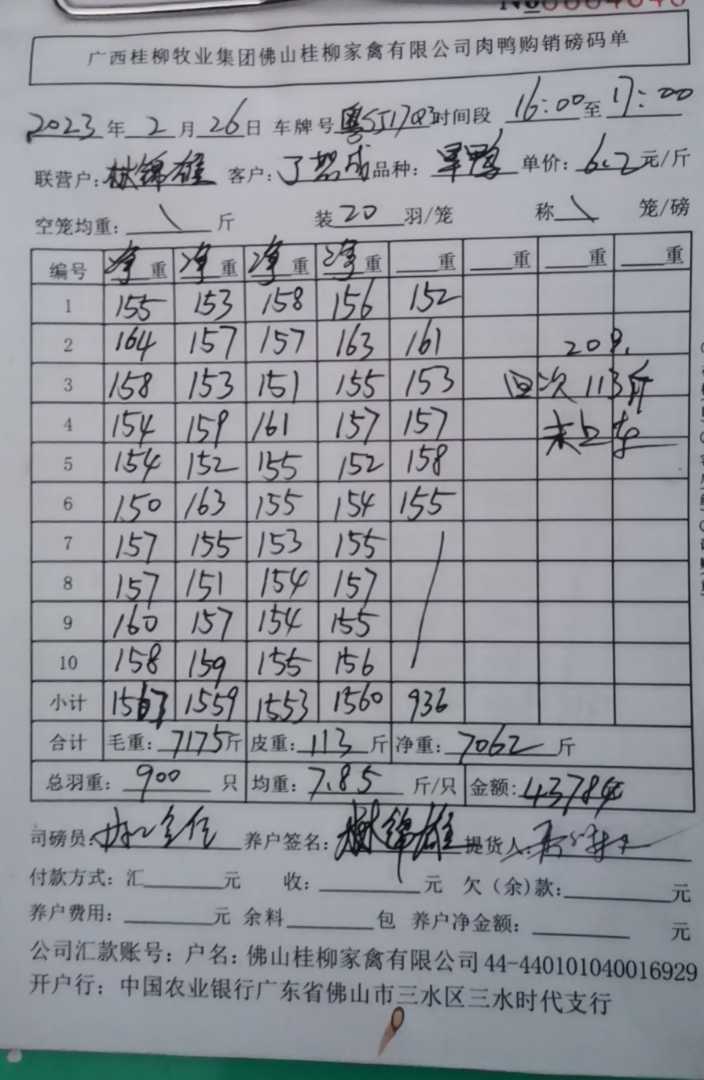 广西桂柳牧业集团佛山桂柳家禽有限公司肉鸭购销磅码单
2023年2月26日 车牌号粤SJ17Q3时间段 16:00至17:00
联营户:林锦雄 客户: 品种: 单价:6.2元/斤
空笼均重:\斤 装20羽/笼 称\笼/磅
编号 净重 净重 净重 净重 重 重 重 重
1 155 153 158 156 152
2 164 157 157 163 161 20只.
3 158 153 151 155 153 四次 113斤
4 154 159 161 157 157 未上车
5 154 152 155 152 158
6 150 163 155 154 155
7 157 155 153 155
8 157 151 154 157
9 160 157 154 155
10 158 159 155 156
小计 1567 1559 1553 1560 936
合计 毛重:7175斤 皮重:113斤 净重:7062斤
总羽重:900只 均重:7.85斤/只 金额:43784
司磅员: 养户签名:林锦雄 提货人:
付款方式:汇 元 收: 元 欠(余)款: 元
养户费用: 元 余料 包 养户净金额: 元
公司汇款账号:户名:佛山桂柳家禽有限公司44-440101040016929
开户行:中国农业银行广东省佛山市三水区三水时代支行